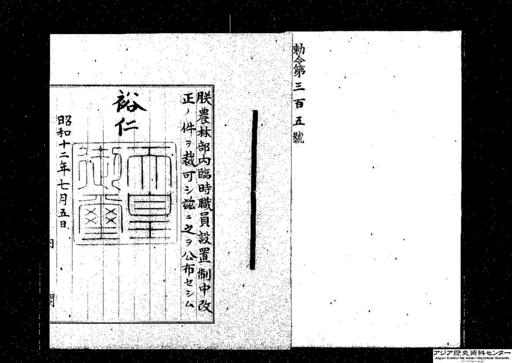 勅令第三百五號
朕農林部内臨時職員設置制中改
正ノ件ヲ裁可シ玆ニ之ヲ公布セシム
裕仁
天皇御璽
昭和十二年七月五日
内閣
アジア歴史資料センター
Japan Center for Asian Historical Records